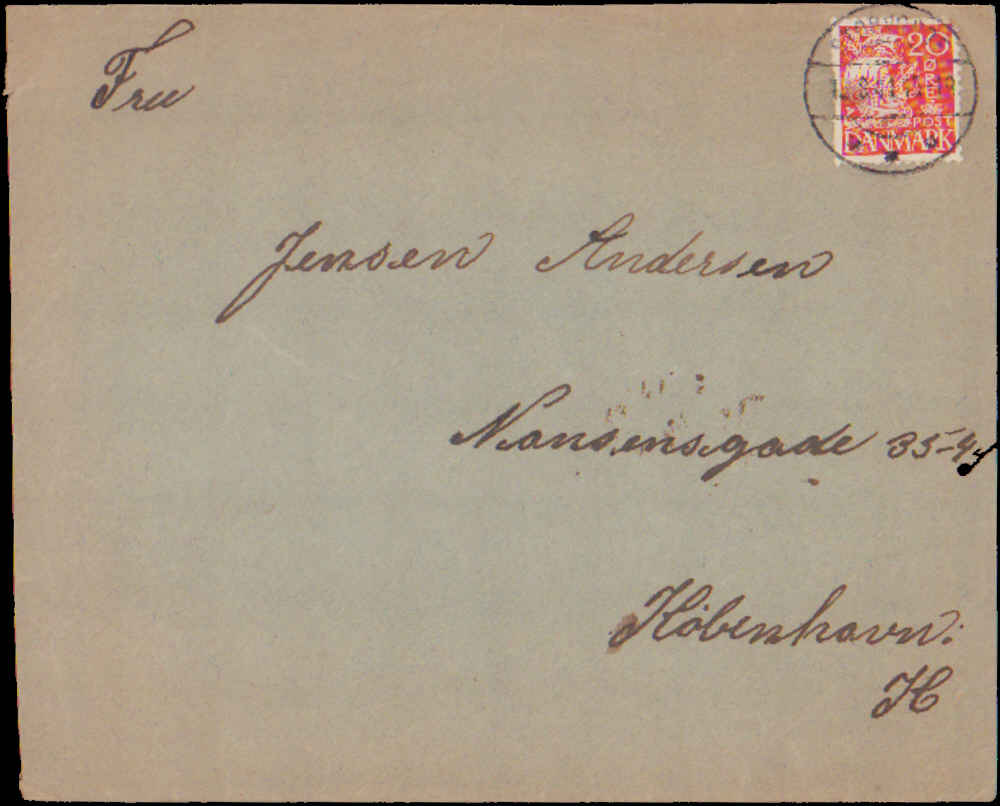 Fru
20
ØRE
POST
DANMARK
Jensen Andersen
Nansensgade 35-4
København.
H